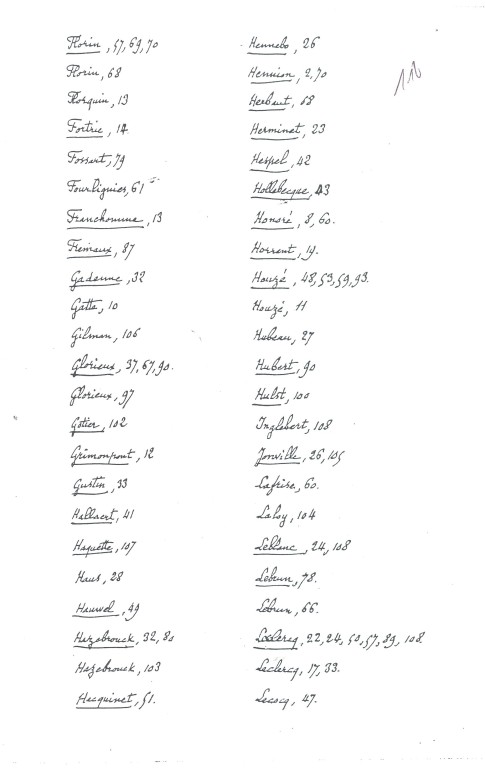 Florin, 57, 69, 70
Florin, 68
Florquin, 13
Fortrie, 14
Fossart, 79
Fourliguies, 61
Franchomme, 13
Fremaux, 87
Gadenne, 32
Gatte, 10
Gilman, 106
Glorieux, 37, 67, 90.
Glorieux, 97
Gotier, 102
Grimonpont, 12
Gustin, 33
Hallaert, 41
Haquette, 107
Haus, 28
Hauwel, 49
Hazebrouck, 32, 80
Hazebrouck, 103
Hecquinet, 51.
116
Hennebo, 26
Hennion, 2, 70
Herbaut, 68
Herminet, 23
Hespel, 42
Hollebecque, 43
Honoré, 8, 60.
Horrent, 19.
Houzé, 48, 53, 59, 93.
Houzé, 11
Hubeau, 27
Hubert, 90
Hulst, 100
Inglebert, 108
Jonville, 26, 105
Lafrise, 60.
Laloy, 104
Leblanc, 24, 108
Lebrun, 78.
Lebrun, 66.
Leclercq, 22, 24, 50, 57, 89, 108.
Leclercq, 17, 33.
Lecocq, 47.